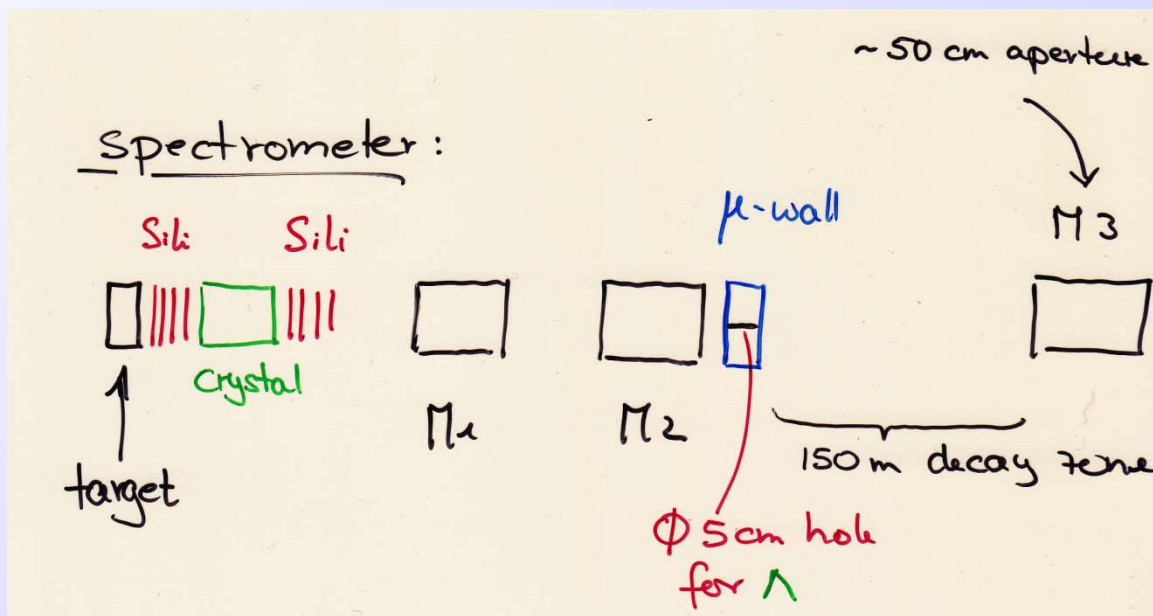 ~50 cm aperture
Spectrometer:
Sili Sili
μ-wall
M3
crystal
M1 M2
150m decay zone
target
Φ 5cm hole
for Λ